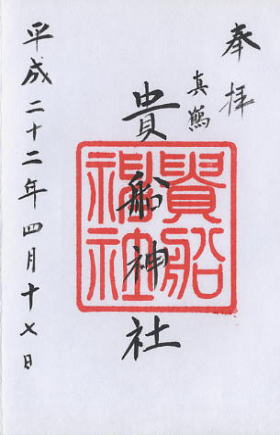 奉拝
真鶴
貴船神社
貴船
神社
平成二十二年四月十七日